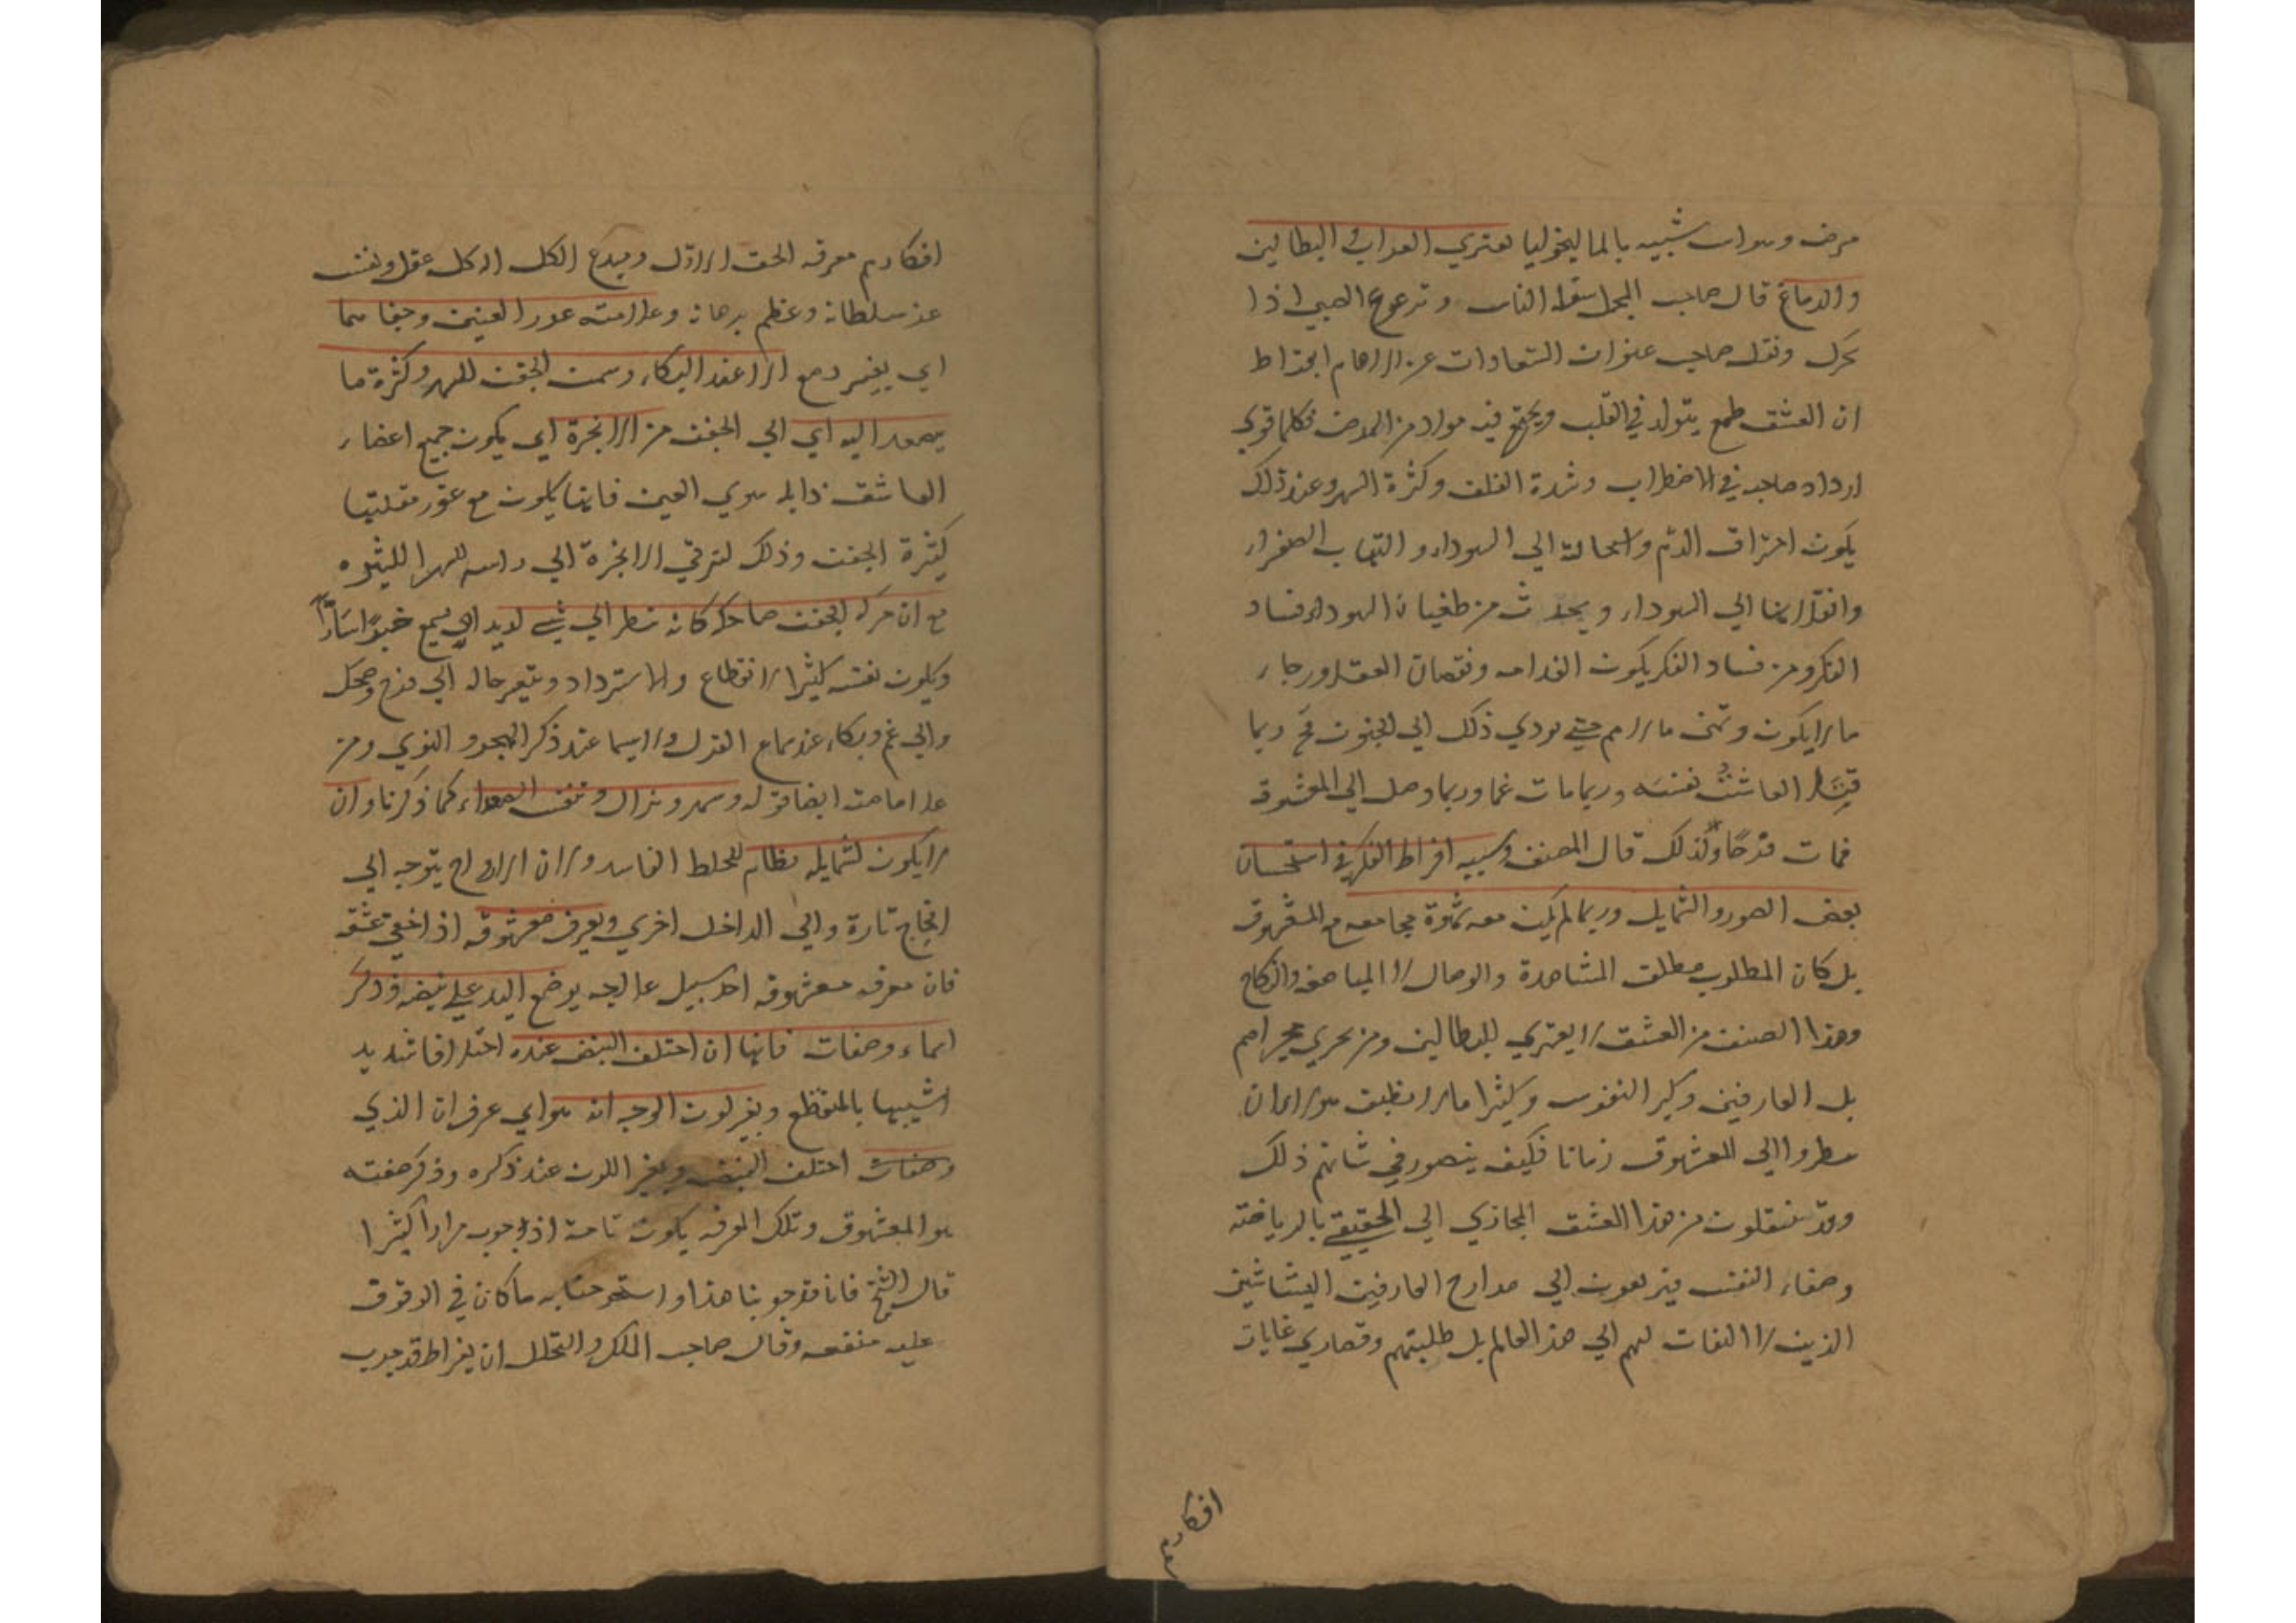 مرض وسواس شبيه بالماليخوليا يعتري العزاب والبطالين
والدماغ قال صاحب المجمل سقط الناس وترعرع الصبي اذا
تحرك ونقل صاحب عنوان السعادات عن الامام ابقراط
ان العشق طمع يتولد في القلب ويجتمع فيه مواد من الحرص فكلما قوي
ازداد صاحبه في الاضطراب وشدة القلق وكثرة السهر وعند ذلك
يكون احتراق الدم واستحالته الي السوداء والتهاب الصفراء
وانقلابها الي السوداء ويحدث من طغيان السوداء فساد
الفكر ومن فساد الفكر يكون الفدامه ونقصان العقل ورجاء
ما لا يكون وتمني ما لا يتم حتي يودي ذلك الي الجنون فح ربما
قتل العاشق نفسه وربما مات غما وربما وصل الي المعشوق
فمات فرحًا ولذلك قال المصنف وسببه افراط الفكر في استحسان
بعض الصور والشمايل وربما لم يكن معه شهوة مجامعه مع المعشوق
بل كان المطلوب مطلق المشاهدة والوصال لا المباضعه والنكاح
وهذا الصنف من العشق لا يعتري للبطالين ومن يجري مجراهم
بل العارفين وكبر النفوس وكثيرا ما لا نطيق هولاء ان
ينظروا الي المعشوق زمانا فكيف يتصور في شانهم ذلك
وقد ينتقلون من هذا العشق المجازي الي الحقيقي بالرياضة
وصفاء النفس فيرتقون الي مدارج العارفين البشاشين
الذين لا التفات لهم الي هذا العالم بل طلبتهم وقصاري غايات
افكارهم
افكارهم معرفه الحق الاول ومبدع الكل اله كل عقل ونفس
عز سلطانه وعظم برهانه وعلامته غور العينين وجفافهما
اي بغير دمع الا عند البكاء وسمن الجفن للسهر وكثرة ما
يصعد اليه اي الي الجفن من الابخرة اي يكون جميع اعضاء
العاشق ذابله سوي العين فانها يكون مع غور مقلتها
كثيرة الجفن وذلك لترقي الابخرة الي راسه للسهر
مع ان حركه الجفن ضاحكه كانه ينظر الي شي لذيد او يسمع خبرًا سارًّا
ويكون نفسه كثير الانقطاع والاسترداد ويتغير حاله الي فرح وضحك
والي غم وبكاء عند سماع الغزل ولاسيما عند ذكر الهجر والنوي ومن
علاماته ايضا قوله وسهر وهزال وتنفس الصعداء كما ذكرنا وان
لا يكون لشمايله نظام للخلط الفاسد ولان الارواح يتوجه الي
الخارج تارة والي الداخل اخري ويعرف معشوقه اذا اخفي عشقه
فان معرفه معشوقه احد سبيل علاجه بوضع اليد علي نبضه وذكر
اسماء وصفات فايها ان اختلف النبض عنده اختلافا شديد
شبيها بالمنقطع وبغير لون الوجه انه هو اي عرف ان الذي
وصفات اختلف النبض وبغير اللون عند ذكره وذكر صفته
هو المعشوق وتلك المعرفه يكون تامة اذا جرب مرارا كثيرا
قال الشيخ فانا قد جربنا هذا واستخرجنا به ما كان في الوقوف
عليه منفعه وقال صاحب الملل والنحل ان بقراط قد جرب